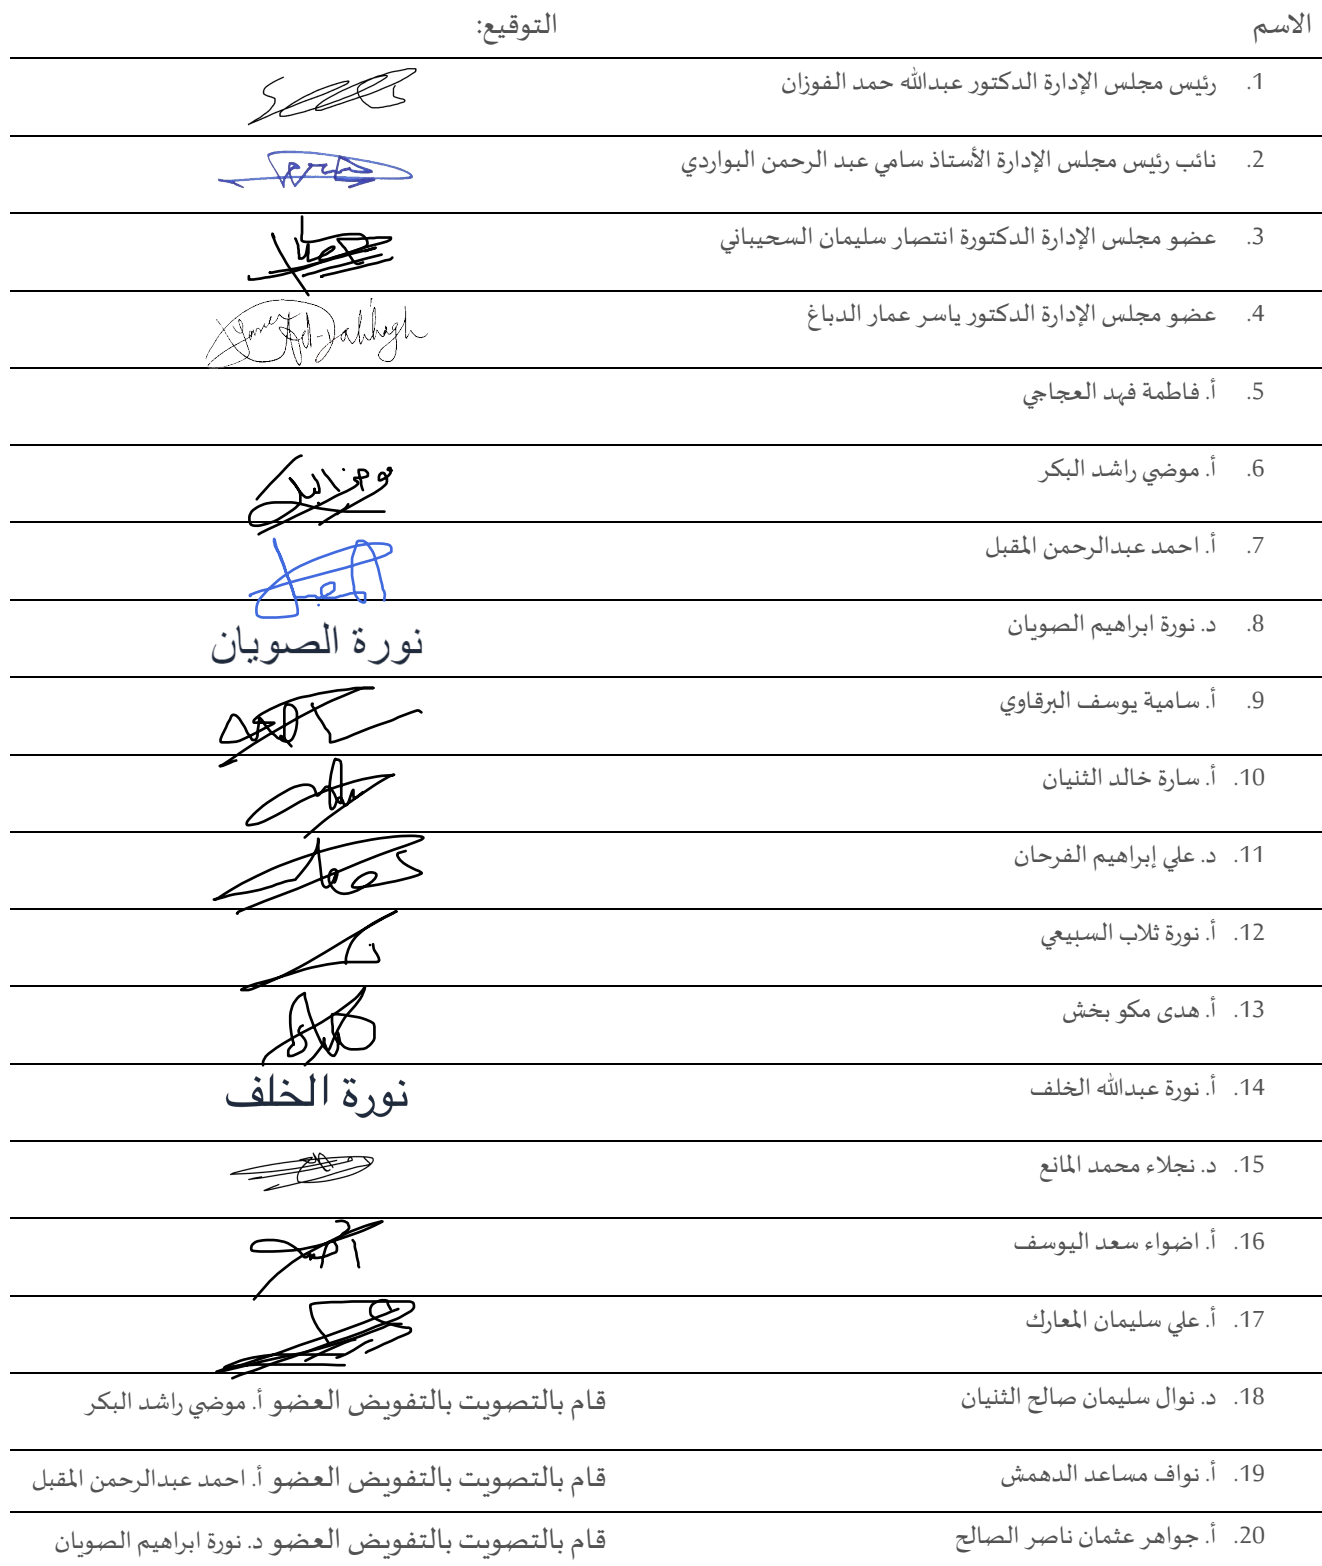 الاسم التوقيع:
1. رئيس مجلس الإدارة الدكتور عبدالله حمد الفوزان
2. نائب رئيس مجلس الإدارة الأستاذ سامي عبد الرحمن البواردي
3. عضو مجلس الإدارة الدكتورة انتصار سليمان السحيباني
4. عضو مجلس الإدارة الدكتور ياسر عمار الدباغ
5. أ. فاطمة فهد العجاجي
6. أ. موضي راشد البكر
7. أ. احمد عبدالرحمن المقبل
8. د. نورة ابراهيم الصويان نورة الصويان
9. أ. سامية يوسف البرقاوي
10. أ. سارة خالد الثنيان
11. د. علي إبراهيم الفرحان
12. أ. نورة ثلاب السبيعي
13. أ. هدى مكو بخش
14. أ. نورة عبدالله الخلف نورة الخلف
15. د. نجلاء محمد المانع
16. أ. اضواء سعد اليوسف
17. أ. علي سليمان المعارك
18. د. نوال سليمان صالح الثنيان قام بالتصويت بالتفويض العضو أ. موضي راشد البكر
19. أ. نواف مساعد الدهمش قام بالتصويت بالتفويض العضو أ. احمد عبدالرحمن المقبل
20. أ. جواهر عثمان ناصر الصالح قام بالتصويت بالتفويض العضو د. نورة ابراهيم الصويان